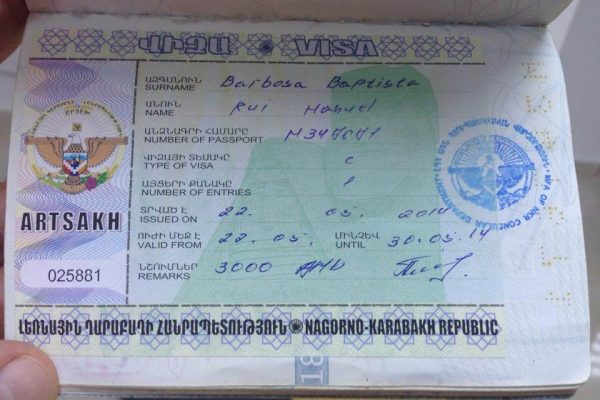 ՎԻԶԱ VISA
ԱԶԳԱՆՈՒՆ
SURNAME Barbosa Baptista
ԱՆՈՒՆ
NAME Rui Manuel
ԱՆՁՆԱԳՐԻ ՀԱՄԱՐԸ
NUMBER OF PASSPORT
ՎԻԶԱՅԻ ՏԵՍԱԿԸ
TYPE OF VISA c
ԱՅՑԵՐԻ ՔԱՆԱԿԸ
NUMBER OF ENTRIES 1
ՏՐՎԱԾ Է
ISSUED ON 22. 05. 2014
ՈՒԺԻ ՄԵՋ Է ՄԻՆՉԵՎ
VALID FROM 22. 05. UNTIL 30.05.14
ՆՇՈՒՄՆԵՐ
REMARKS 3000 AMD
ARTSAKH
025881
ԼԵՌՆԱՅԻՆ ՂԱՐԱԲԱՂԻ ՀԱՆՐԱՊԵՏՈՒԹՅՈՒՆ NAGORNO-KARABAKH REPUBLIC
MFA OF NKR CONSULAR DEPARTMENT